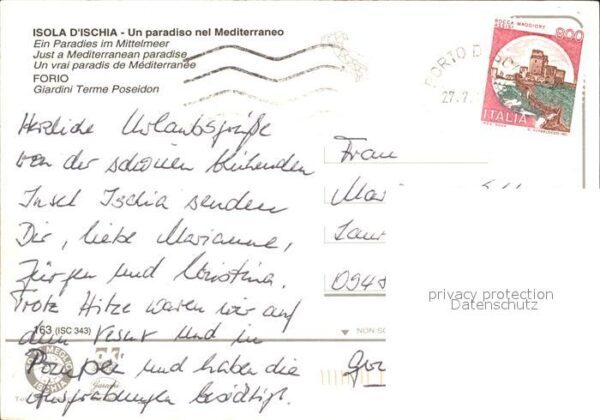 ISOLA D'ISCHIA - Un paradiso nel Mediterraneo
Ein Paradies im Mittelmeer
Just a Mediterranean paradise
Un vrai paradis de Méditerranée
FORIO
Giardini Terme Poseidon
Herzliche Urlaubsgrüße
von der schönen blühenden
Insel Ischia senden
Dir, liebe Marianne,
Jürgen und Christina.
Trotz Hitze waren wir auf
dem Vesuv und in
Pompeji und haben die
Ausgrabungen besichtigt.
163 (ISC 343)
MEGLIO
ISCHIA
PORTO D
27.7.
ROCCA MAGGIORE
ASSISI
800
ITALIA
Frau
094
privacy protection
Datenschutz
NON